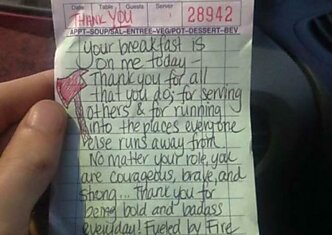 Date Table Guests Server
THANK YOU 28942
APPT-SOUP/SAL-ENTREE-VEG/POT-DESSERT-BEV
Your breakfast is
on me today -
Thank you for all
that you do; for serving
others & for running
into the places everyone
else runs away from.
No matter your role, you
are courageous, brave, and
strong... Thank you for
being bold and badass
everyday! Fueled by Fire